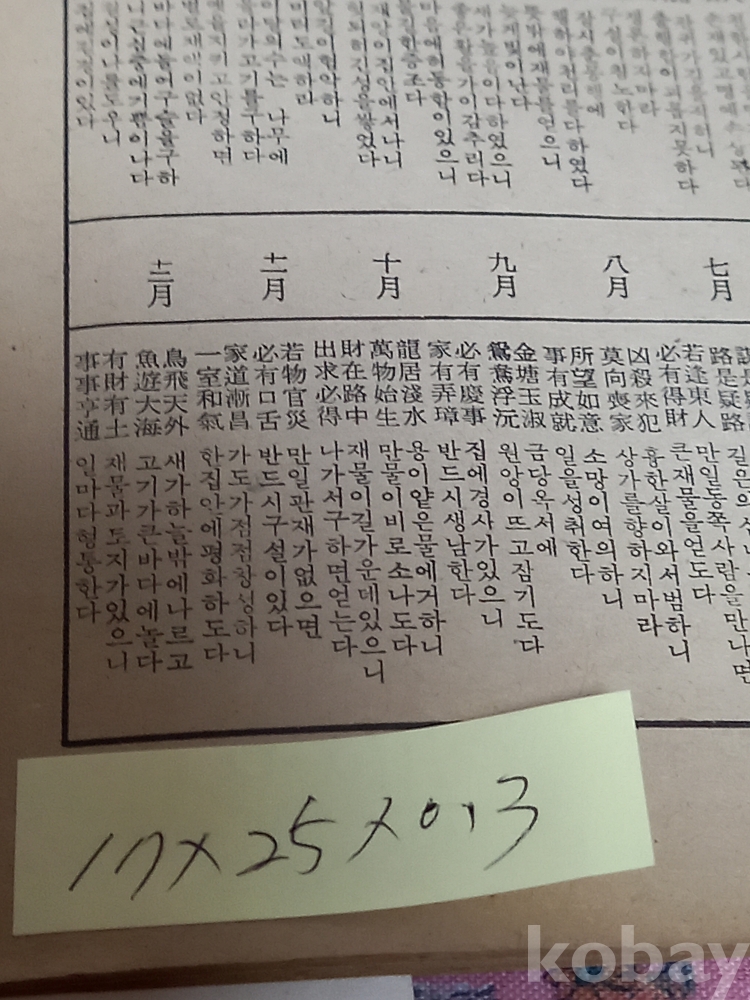 이롭지못하다
구설이침노한다
잠시출동함에
행하야천리를다하였다
뜻밖에재물을얻으니
늦게빛이난다
새가높음이다하였으니
좋은활을가이감추리다
마음에허동함이있으니
길한증조다
재앙이집안에서나니
일되하진성을쌓었다
미리도액하라
이달의수는 나무에
올나가고기를구하다
예를지키고안정하면
별로재액이없다
바다에들어구슬을구하
니근심중에기쁨이나다
七月
八月
九月
十月
十一月
十二月
路是疑路
若逢東人
必有得財
凶殺來犯
莫向喪家
所望如意
事有成就
金塘玉淑
鴛鴦浮沅
必有慶事
家有弄璋
龍居淺水
萬物始生
財在路中
出求必得
若物官災
必有口舌
家道漸昌
一室和氣
鳥飛天外
魚遊大海
有財有土
事事亨通
만일동쪽사람을만나면
큰재물을얻도다
흉한살이와서범하니
상가를향하지마라
소망이여의하니
일을성취한다
금당옥서에
원앙이뜨고잠기도다
집에경사가있으니
반드시생남한다
용이얕은물에거하니
만물이비로소나도다
재물이길가운데있으니
나가서구하면얻는다
만일관재가없으면
반드시구설이있다
가도가점점창성하니
한집안에평화하도다
새가하늘밖에나르고
고기가큰바다에놀다
재물과도지가있으니
일마다형통한다
17x25x0.3
kobay